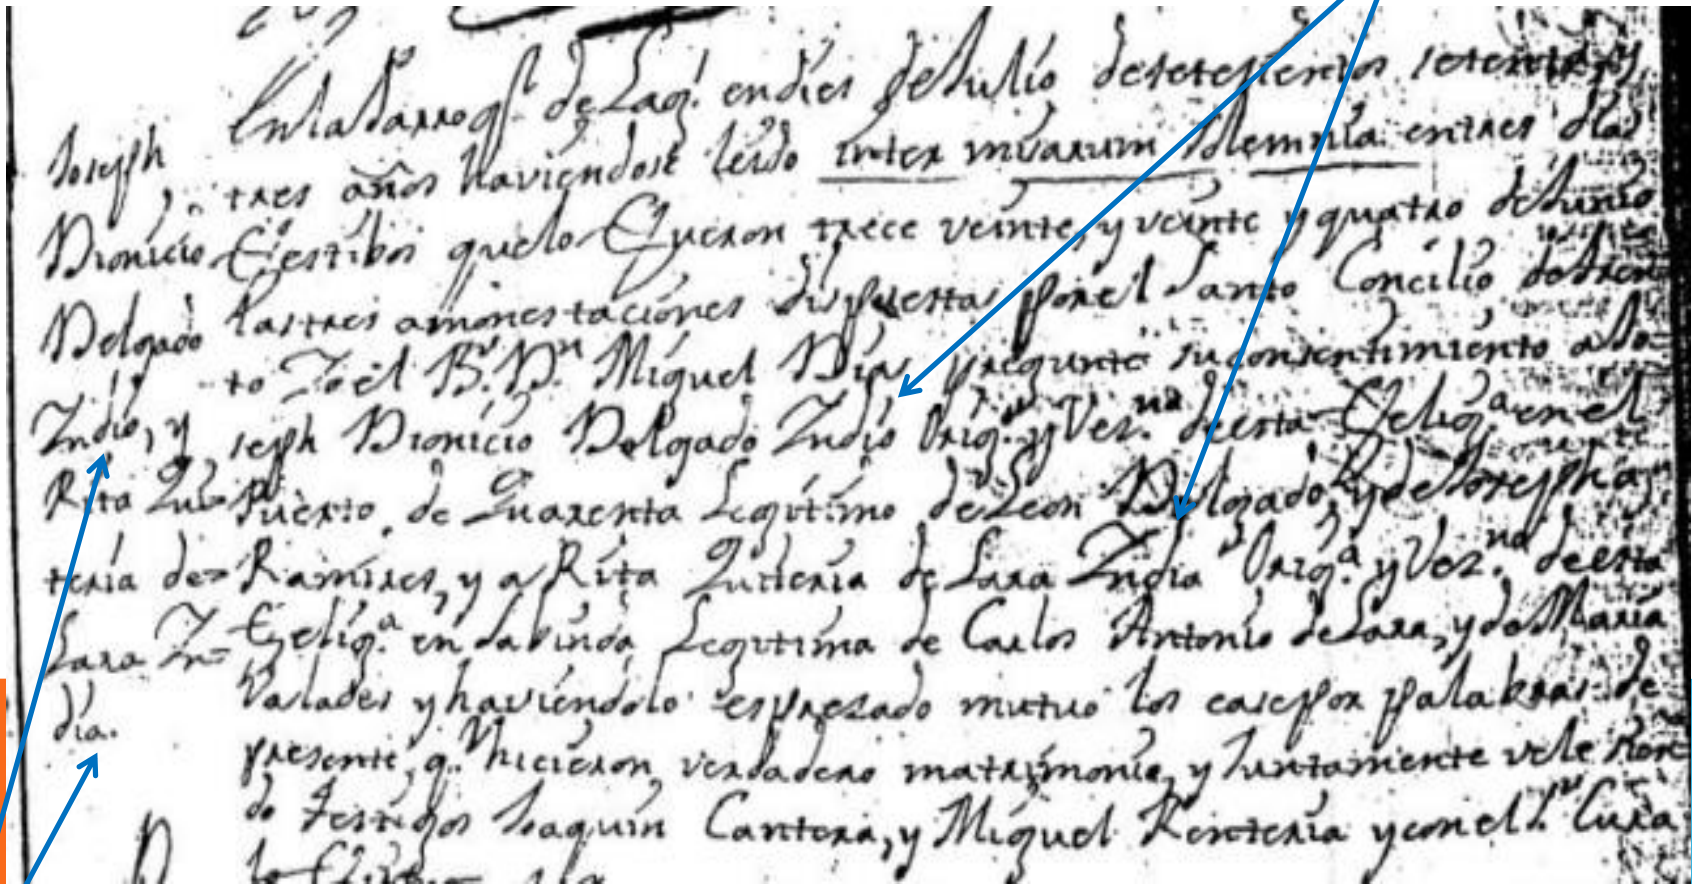 Joseph
Dionicio
Delgado
Indio, y
Rita Qui=
teria de=
Lara In=
dia.
En la Parroq.l de Lag.s en dies de Julio de setecientos setenta y
tres años haviendose leido inter misarum solemnia en tres dias
festibos que lo fueron trece veinte, y veinte y quatro de Junio
las tres amonestaciones dispuestas por el Santo Concilio de Tren
to Yo el B.r D.n Miguel Dias pregunté su consentimiento a Jo=
seph Dionicio Delgado Indio Orig.o y Vez.no de esta Felig.a en el
Puerto, de Quarenta Legitimo de Leon Delgado, y de Josepha
Ramires, y a Rita Quiteria de Lara India Orig.a y Vez.na de esta
Felig.a en Labinda Legitima de Carlos Antonio de Lara, y de Maria
Valades y haviendolo espresado mutuo los case por palabras de
presente, q.e hicieron verdadero matrimonio, y Juntamente vele siendo
do Testigos Joaquin Cantera, y Miguel Renteria y con el S.r Cura
lo firmé